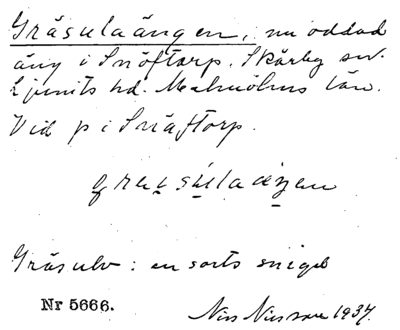 Gräsulaängen, nu oddad
äng i Snöftorp. Skårby sn.
Ljunits hd. Malmöhus län.
Vid p i Snäftorp.
Gräsulv: en sorts snigel
Nr 5666.
Nils Nilsson 1937.